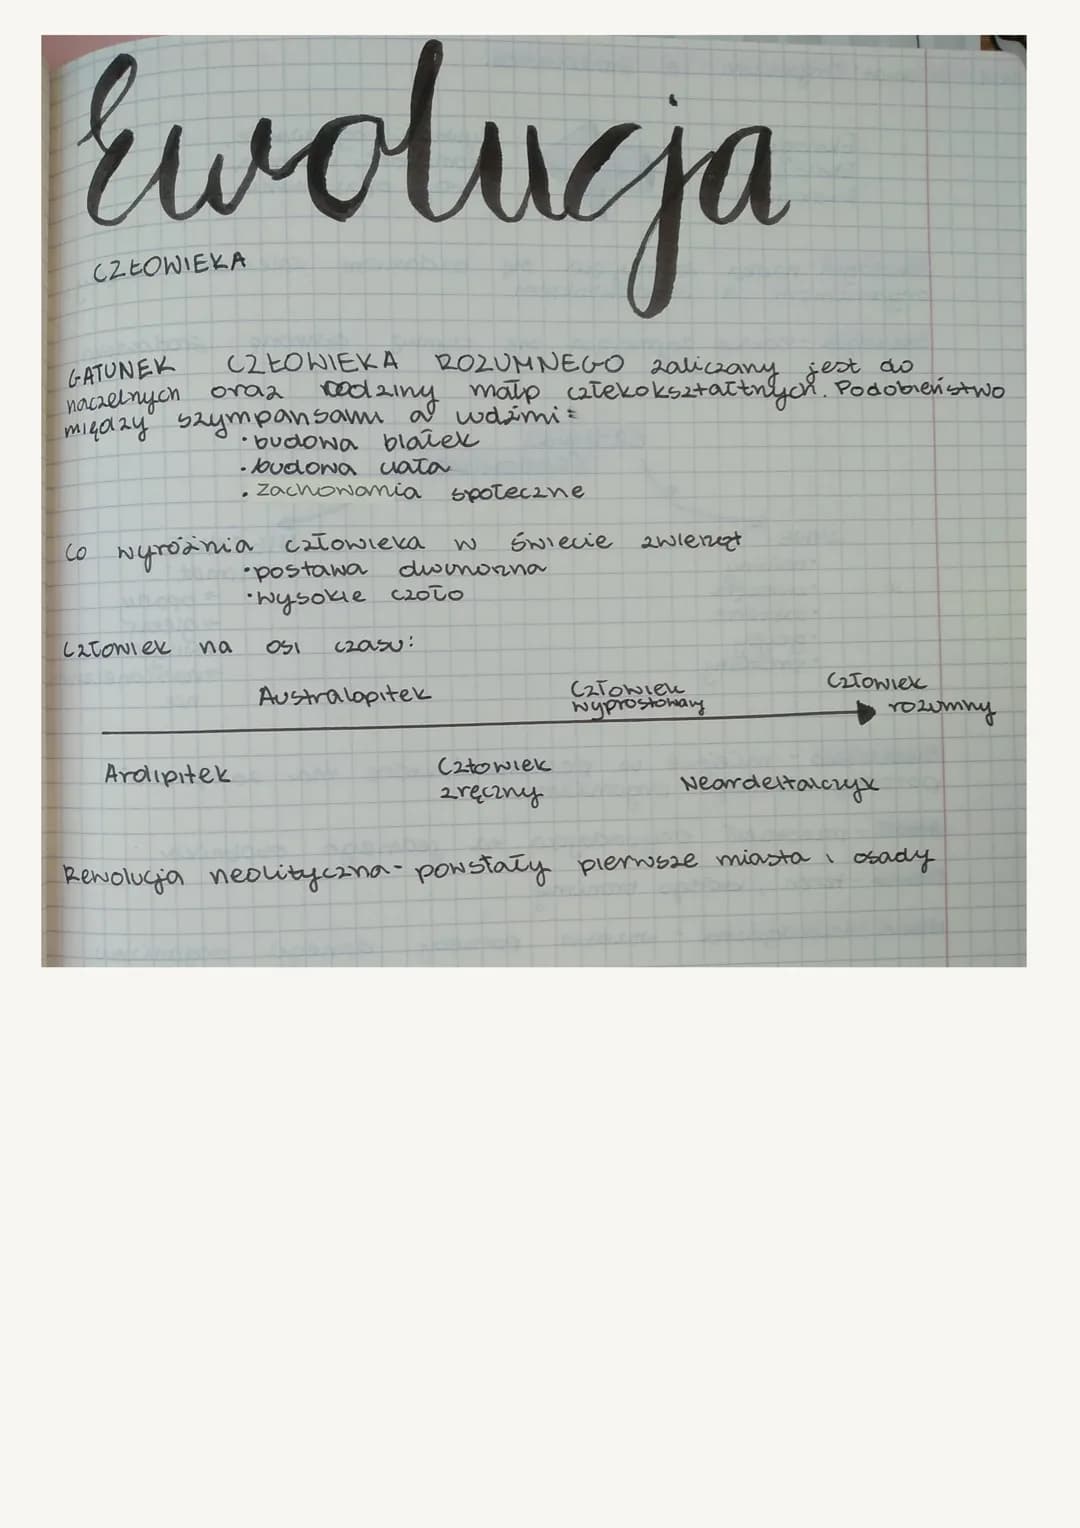 Ewolucja
CZŁOWIEKA
GATUNEK CZŁOWIEKA ROZUMNEGO zaliczany jest do
naczelnych oraz rodziny małp człekokształtnych. Podobieństwo
między szympansami a ludźmi:
• budowa białek
• budowa ciała
• zachowania społeczne
Co wyróżnia człowieka w świecie zwierząt
• postawa dwunożna
• wysokie czoło
Człowiek na osi czasu:
Australopitek Człowiek wyprostowany Człowiek rozumny
Ardipitek Człowiek zręczny Neardeltalczyk
Rewolucja neolityczna - powstały pierwsze miasta i osady